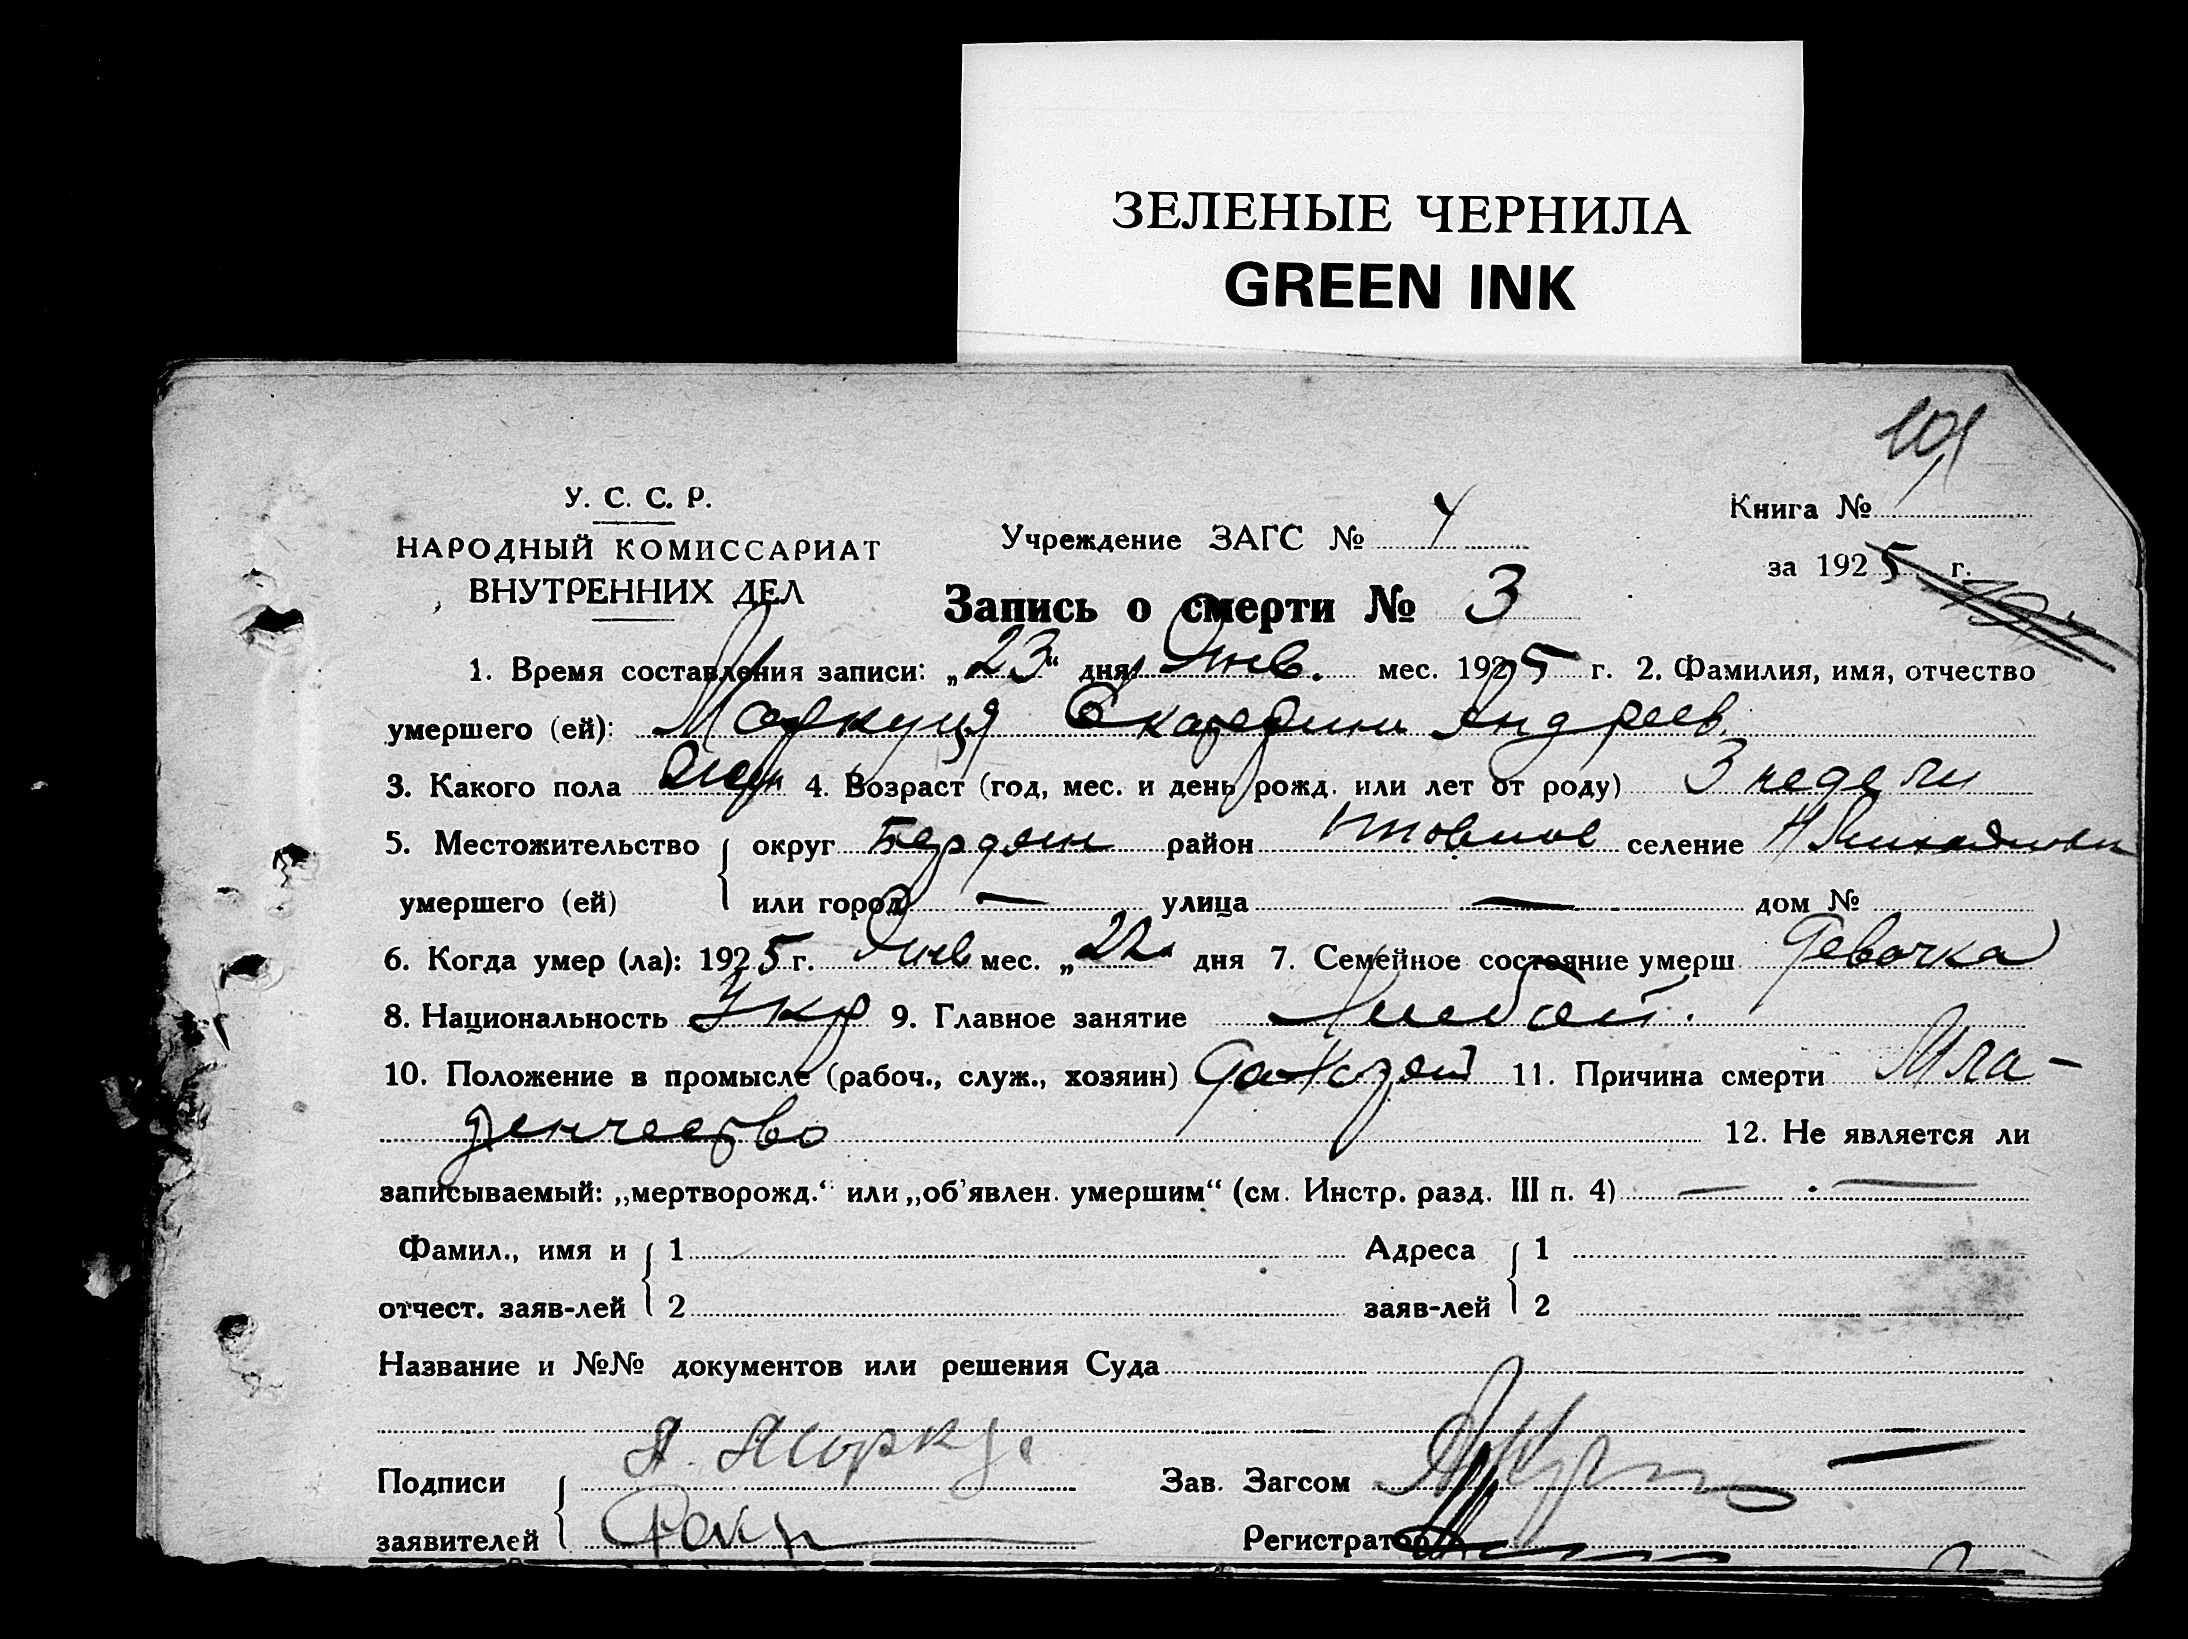 ЗЕЛЕНЫЕ ЧЕРНИЛА
GREEN INK
101
У. С. С. Р.
НАРОДНЫЙ КОМИССАРИАТ
ВНУТРЕННИХ ДЕЛ
Учреждение ЗАГС №
Книга №
за 1925 г.
Запись о смерти № 3
1. Время составления записи: „23“ дня Янв. мес. 1925 г. 2. Фамилия, имя, отчество
умершего (ей): Маркуця Екатерини Андреев.
3. Какого пола жен 4. Возраст (год, мес. и день рожд. или лет от роду) 3 недели
5. Местожительство округ Бердян район селение Н Михайловк
умершего (ей) или город — улица — дом №
6. Когда умер (ла): 1925 г. Янв мес. „22“ дня 7. Семейное состояние умерш Девочка
8. Национальность Укр 9. Главное занятие
10. Положение в промысле (рабоч., служ., хозяин) 11. Причина смерти Мла-
денчество 12. Не является ли
записываемый: „мертворожд.“ или „об’явлен. умершим“ (см. Инстр. разд. III п. 4) — —
Фамил., имя и 1 Адреса 1
отчест. заяв-лей 2 заяв-лей 2
Название и №№ документов или решения Суда
Подписи Зав. Загсом
заявителей Регистратор